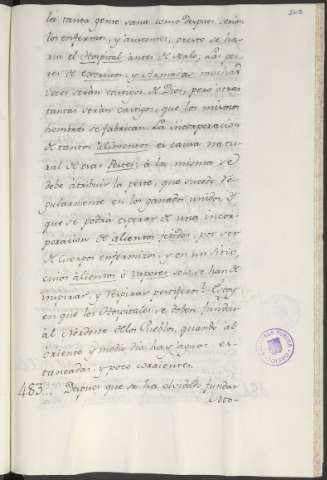 la tanta gente sana como despues serán
los enfermos, y asistentes, presto se ha-
ria el Hospital antes de malo; Las pes-
tes de exercitos, y Armadas muchas
veces serán castigo de Dios, pero otras
tantas serán castigo, que los mismos
hombres se fabrican. La incorporacion
de tantos alimentos es causa natu-
ral de esas Pestes: à la misma se
debe atribuir la peste, que sucede re-
gularmente en los ganados unidos. Y
que se podrá esperar de una incor-
poracion de alientos fetidos, por ser
de Cuerpos enfermizos, y en un Sitio,
cuios alientos ò vapores solos se han de
inspirar, y respirar pestiferos? Estoy
en que los Hospitales se deben fundar
al Nordeste de los Pueblos, quando al
oriente y medio dia hay aguas es-
tancadas, y poco corrientes.
483... Despues que se ha olvidado fundar